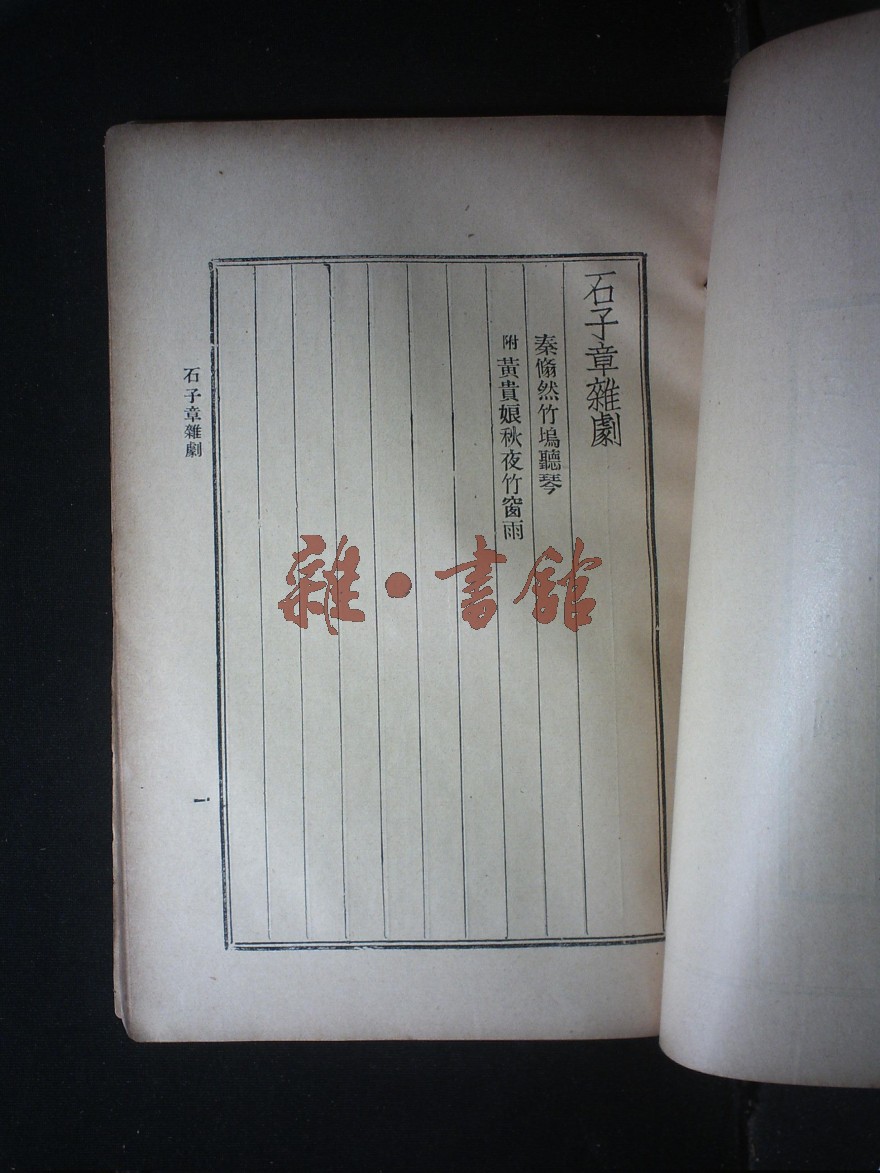 石子章雜劇
秦翛然竹塢聽琴
附 黃貴娘秋夜竹窗雨
石子章雜劇
一
雜·書館